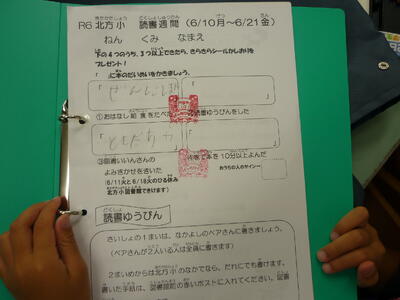 R6 北方小 読書週間 (6/10月～6/21金)
ねん くみ なまえ
下の4つのうち、3つ以上できたら、きらきらシールかしおりを
プレゼント!
「 」に本のだいめいをかきましょう。
①おはなし給食をたべた
読書ゆうびんをした
ともだち
③図書いいんさんの
よみきかせを聞いた
(6/11火と6/18火のひる休み
北方小図書館でききます)
で本を10分以上よんだ
おうちの人のサイン→
読書ゆうびん
さいしょの1まいは、なかよしのペアさんに書きましょう。
(ペアさんが2人いる人は全員に書きます)
2まいめからは北方小のなかでなら、だれにでも書けます。
書いた手紙は、図書館前の赤いポストに入れてください。図書